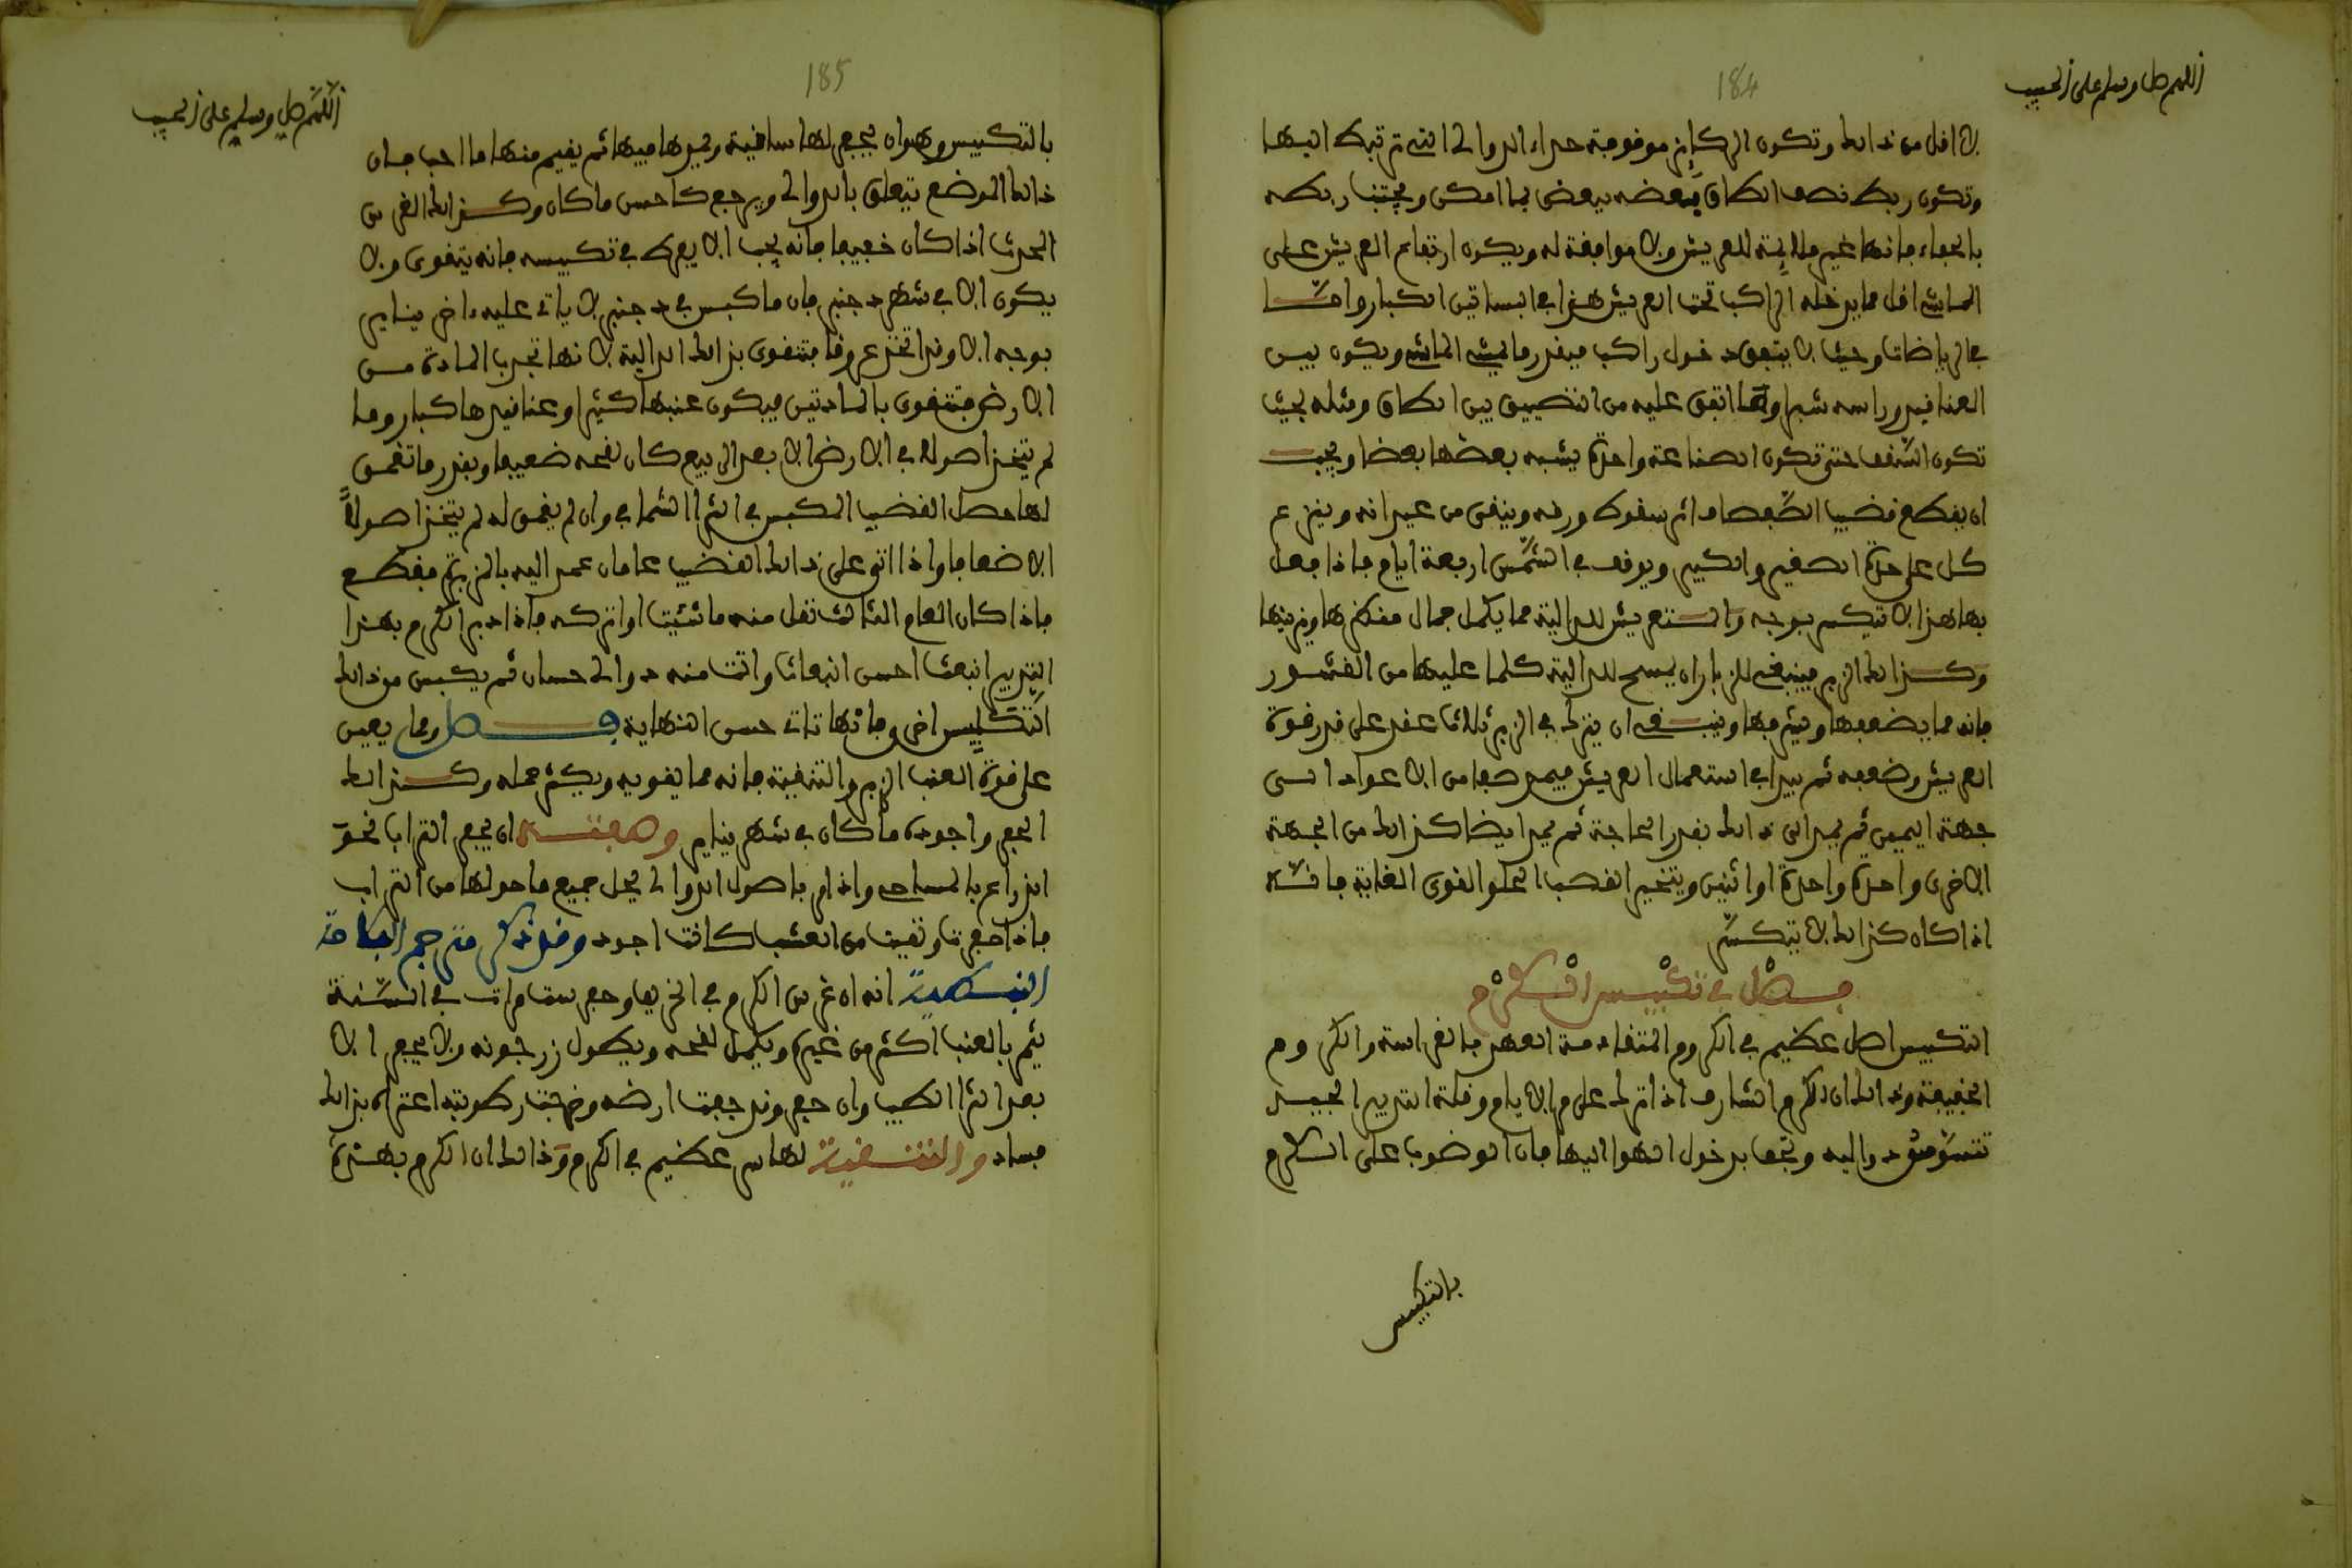 184
اللهم صل وسلم على الحبيب
لا اقل من ذالك وتكون الركايز موقوفة حداء الدوالي التي ترتبط اليها
وتكون ربط نصف الطاق بعضه ببعض بما امكن ويجتنب ربطه
بالحلفاء فانها غير ملايمة للعريش ولا موافقة له ويكون ارتفاع العريش على
الماشي اقل مما يدخله الراكب تحت العريش هذا في البساتين الكبار واما
في الرياضات وحيث لا يتفق دخول راكب فبقدر ما يمشي الماشي ويكون بين
العناقيد وراسه شبر او ما اتفق عليه من التضييق بين الطاق ومثله بحيث
تكون السقف حتى تكون الصناعة واحدة يشبه بعضها بعضا ويجب
ان يقطع قضيب الصفصاف اثر سقوط ورقه وينقى من عيدانه وينزع
كل على حدة الصغير والكبير ويوقف في الشمس اربعة ايام فاذا فعل
بها هذا لا تنكسر بوجه والستعريش للدالية مما يكمل جمال منظرها ويزينها
وكذالك الزبر فينبغي للزبار ان يمسح للدالية كلما عليها من القشور
فانه مما يضعفها ويشرفها وينبغي ان يترك في الزبر ثلاث عقد على قدر قوة
العريش وضعفه ثم يبدا في استعمال العريش فيمد صفا من الاعواد السى
جهة اليمين ثم يمد الى ذالك بقدر الحاجة ثم يمد ايضا كذالك من الجهة
الاخرى واحدة واحدة او اثنين ويتخير القصب الحلو القوي الغاية فانه
اذا كان كذالك لا يتكسر
فصل في تكبيس الكرم
التكبيس اصل عظيم في الكروم المتقادمة العهد بالغراسة والكروم
الخفيفة وذالك ان الكرم الشارف اذا ترك على مر الايام وقلة التدبير الجيد
تتسوس دواليه وتجف بدخول الهوا اليها فان الوضوب على الكرم
بالتكبيس
185
اللهم صل وسلم على الحبيب
بالتكبيس وهو ان يحفر لها ساقية وتمدها فيها ثم يقيم منها ما احب فان
ذالك الموضع يتعلق بالدوالي ويرجع كاحسن ما كان وكذالك الغرس
المحدث اذا كان ضعيفا فانه يجب الا يفرط في تكبيسه فانه يتقوى ولا
يكون الا في شهر دجنبر فان ما كبس في دجنبر لا ياتي عليه داخر يناير
بوجه الا وقد اتخذ عروقا فتقوى بذالك الدالية لانها تجدب المادة من
الارض فتتقوى بالمادتين فيكون عنبها كثيرا وعناقيدها كبار وما
لم يتخذ اصولا في الارض الا بعد الربيع كان لقحه ضعيفا وبقدر ما تغمق
لها حصل القضيب المكبس في الثرا الشافي وان لم يغمق له لم يتخذ اصولا
الا ضعافا واذا اتى على ذالك القضيب عامان عمد اليه بالزبرة فقطع
فاذا كان العام الثالث نقل منه ما شئت او اتركه فاذا دبر الكرم بهذا
التدبير انبعث احسن انبعاث واتت منه دوالي حسان ثم يكبس من ذالك
التكبيس اخرى فانها تاتي حسن النهاية فصل ومما يعين
على قوة العنب الزبر والتنقية فانه مما يقويه ويكثر حمله وكذالك
الحفر واجوده ما كان في شهر يناير وصفته ان يحفر التراب نحو
الذراع بالمساحه واذا مر باصول الدوالي يحل جميع ما حولها من التراب
فاذا حفرت ونقيت من العشب كانت اجود وقد ذكر مترجم الفلاحة
النبطية انه ان غرس الكرم في الخريف وحفر ست مرات في السنة
يثمر بالعنب اكثر من غيره ويكمل لقحه ويطول زرجونه ولا يحفر الا
بعد الثرا الطيب وان حفر وقد جفت ارضه وذهبت رطوبته اعتراه بذالك
فساد والتنقية لها سر عظيم في الكرم وذالك ان الكرم بهذه